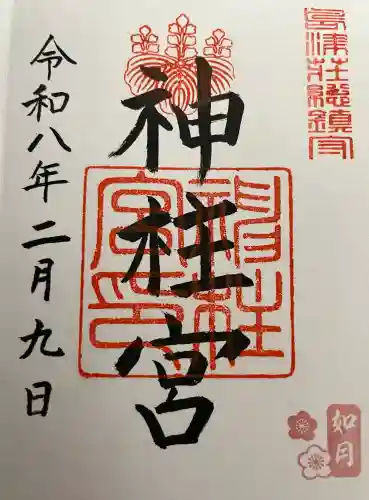 島津荘総鎮守
神柱宮
神柱宮印
令和八年二月九日
如月